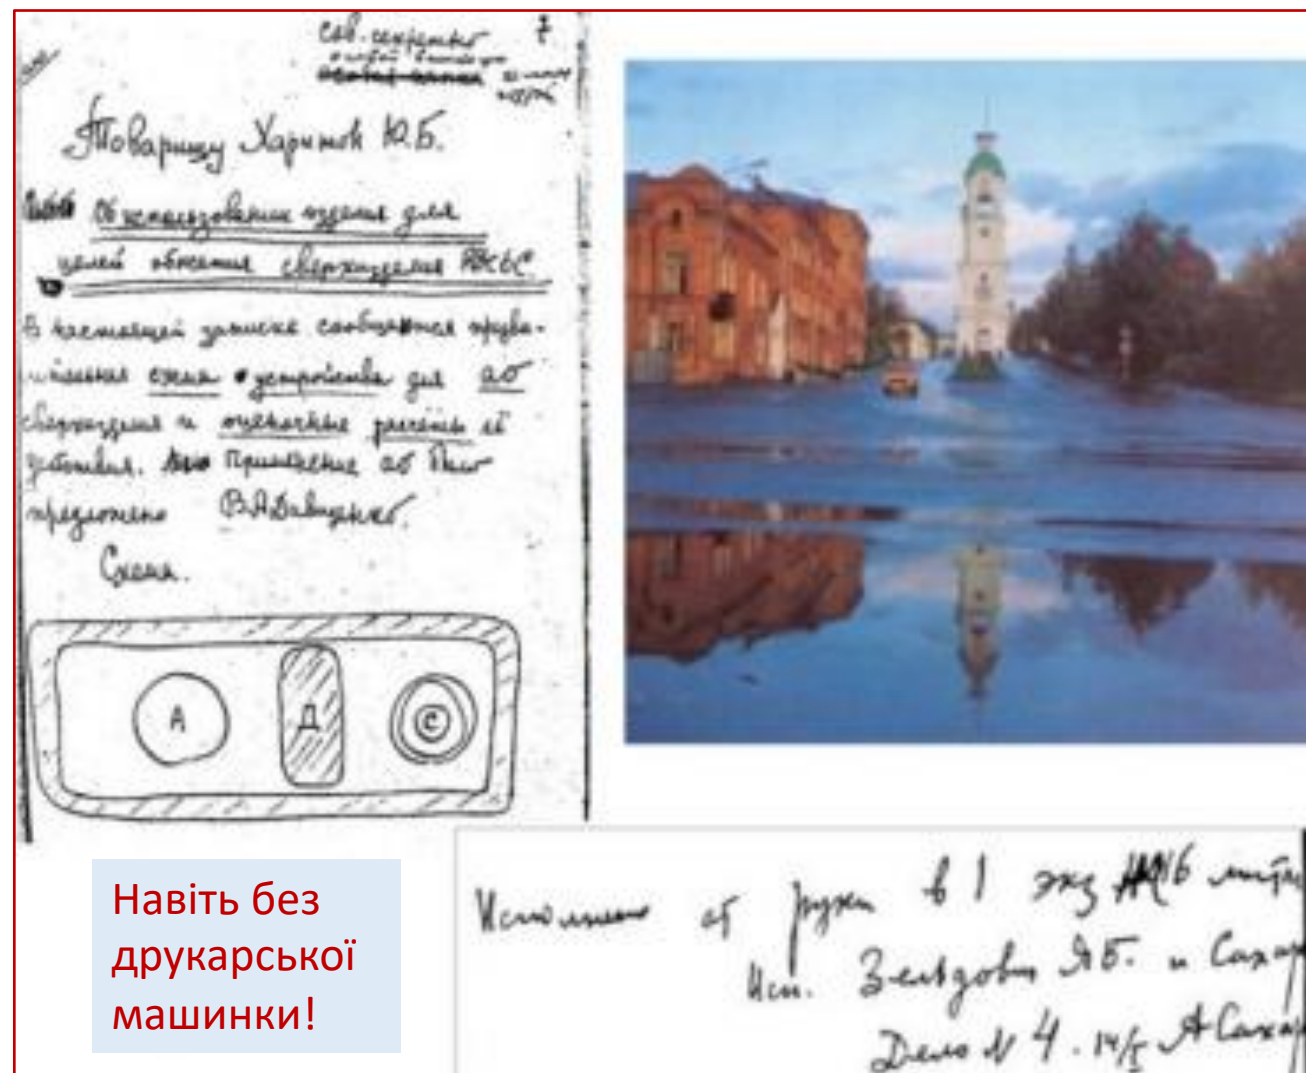 Сов. секретно 7
особой важности
Товарищу Харитон Ю.Б.
Об использовании изделия для
целей обжатия сверхизделия РДС6С.
В настоящей записке сообщается
схема устройства для АО
сверхизделия и оценочные расчёты её
действия. Применение АО было
предложено В.А.Давиденко.
Схема.
А
Д
С
Навіть без
друкарської
машинки!
Исполнено от руки в 1 экз
Исп. Зельдович Я.Б. и Сахар
Дело N 4. 14/I А Сахар